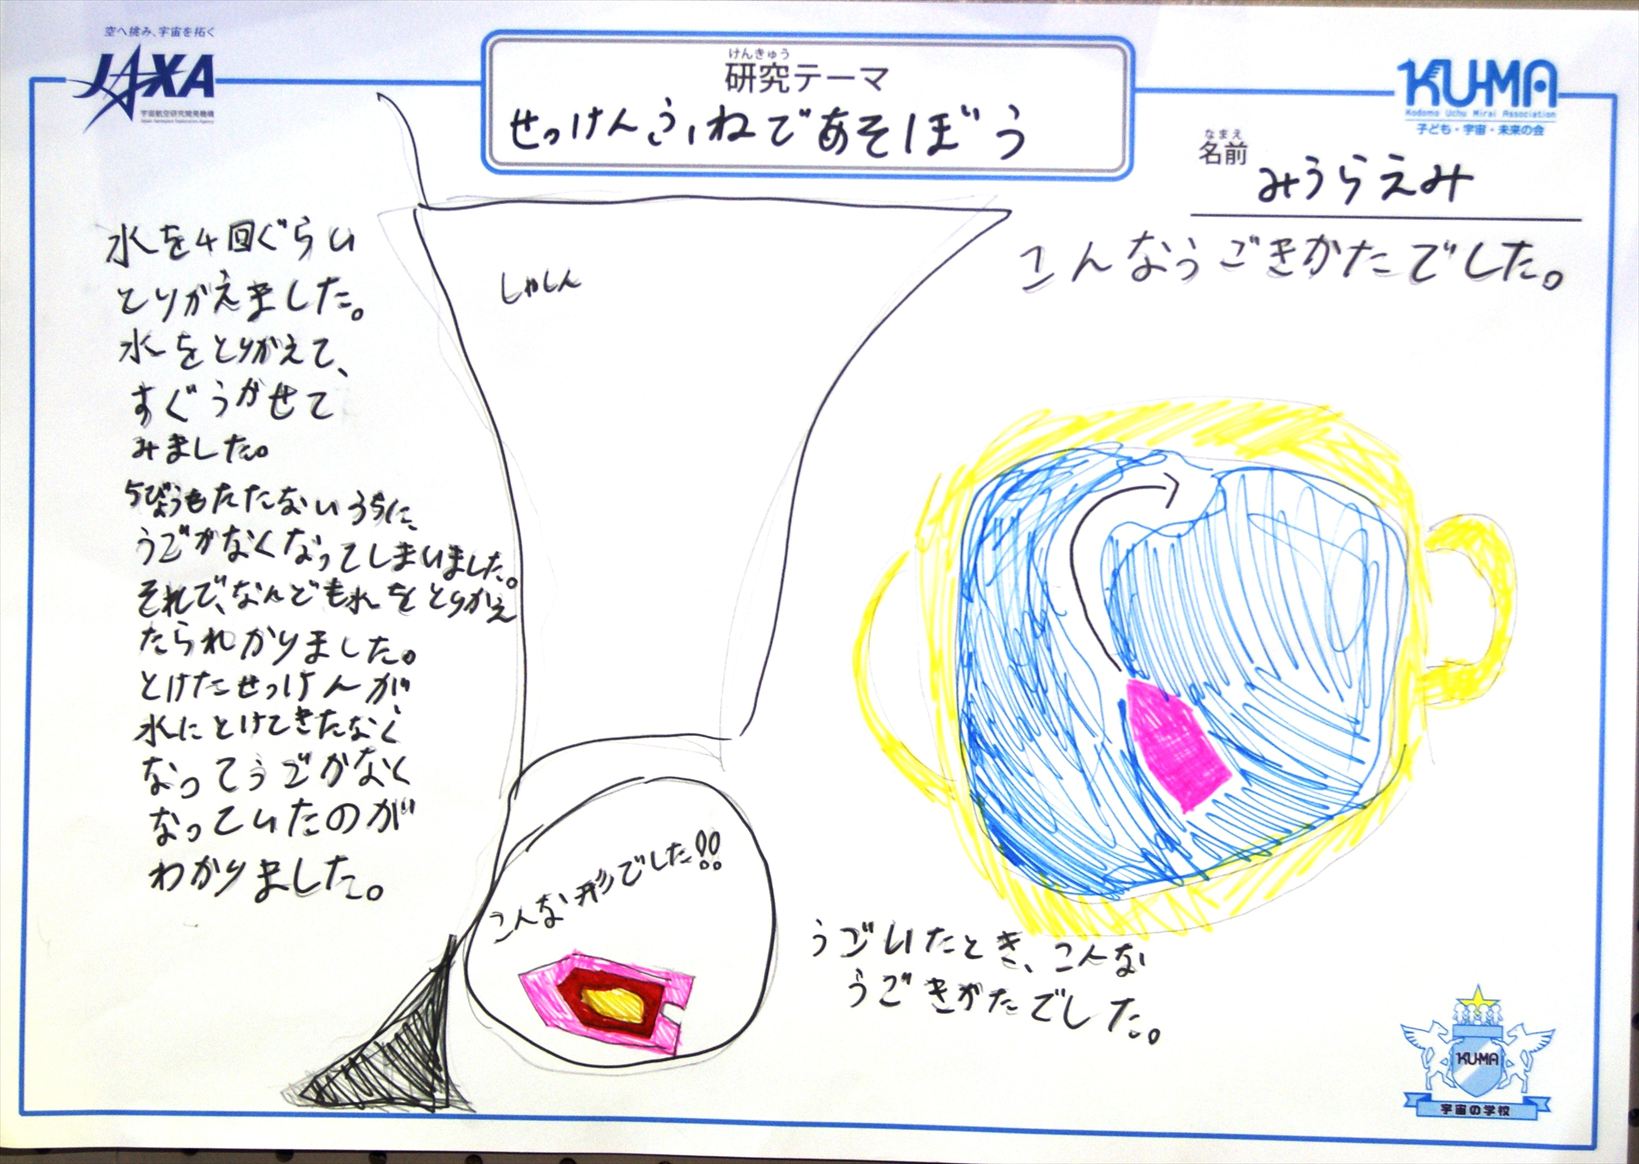 空へ挑み、宇宙を拓く
JAXA
宇宙航空研究開発機構
Japan Aerospace Exploration Agency
けんきゅう
研究テーマ
せっけんふねであそぼう
KU-MA
Kodomo Uchu Mirai Association
子ども・宇宙・未来の会
なまえ
名前
みうらえみ
水を4回ぐらい
とりかえました。
水をとりかえて、
すぐうかせて
みました。
5びょうもたたないうちに、
うごかなくなってしまいました。
それで、なんども水をとりかえ
たらわかりました。
とけたせっけんが
水にとけてきたなく
なってうごかなく
なっていたのが
わかりました。
しゃしん
こんな形でした!!
こんなうごきかたでした。
うごいたとき、こんな
うごきかたでした。
KU-MA
宇宙の学校